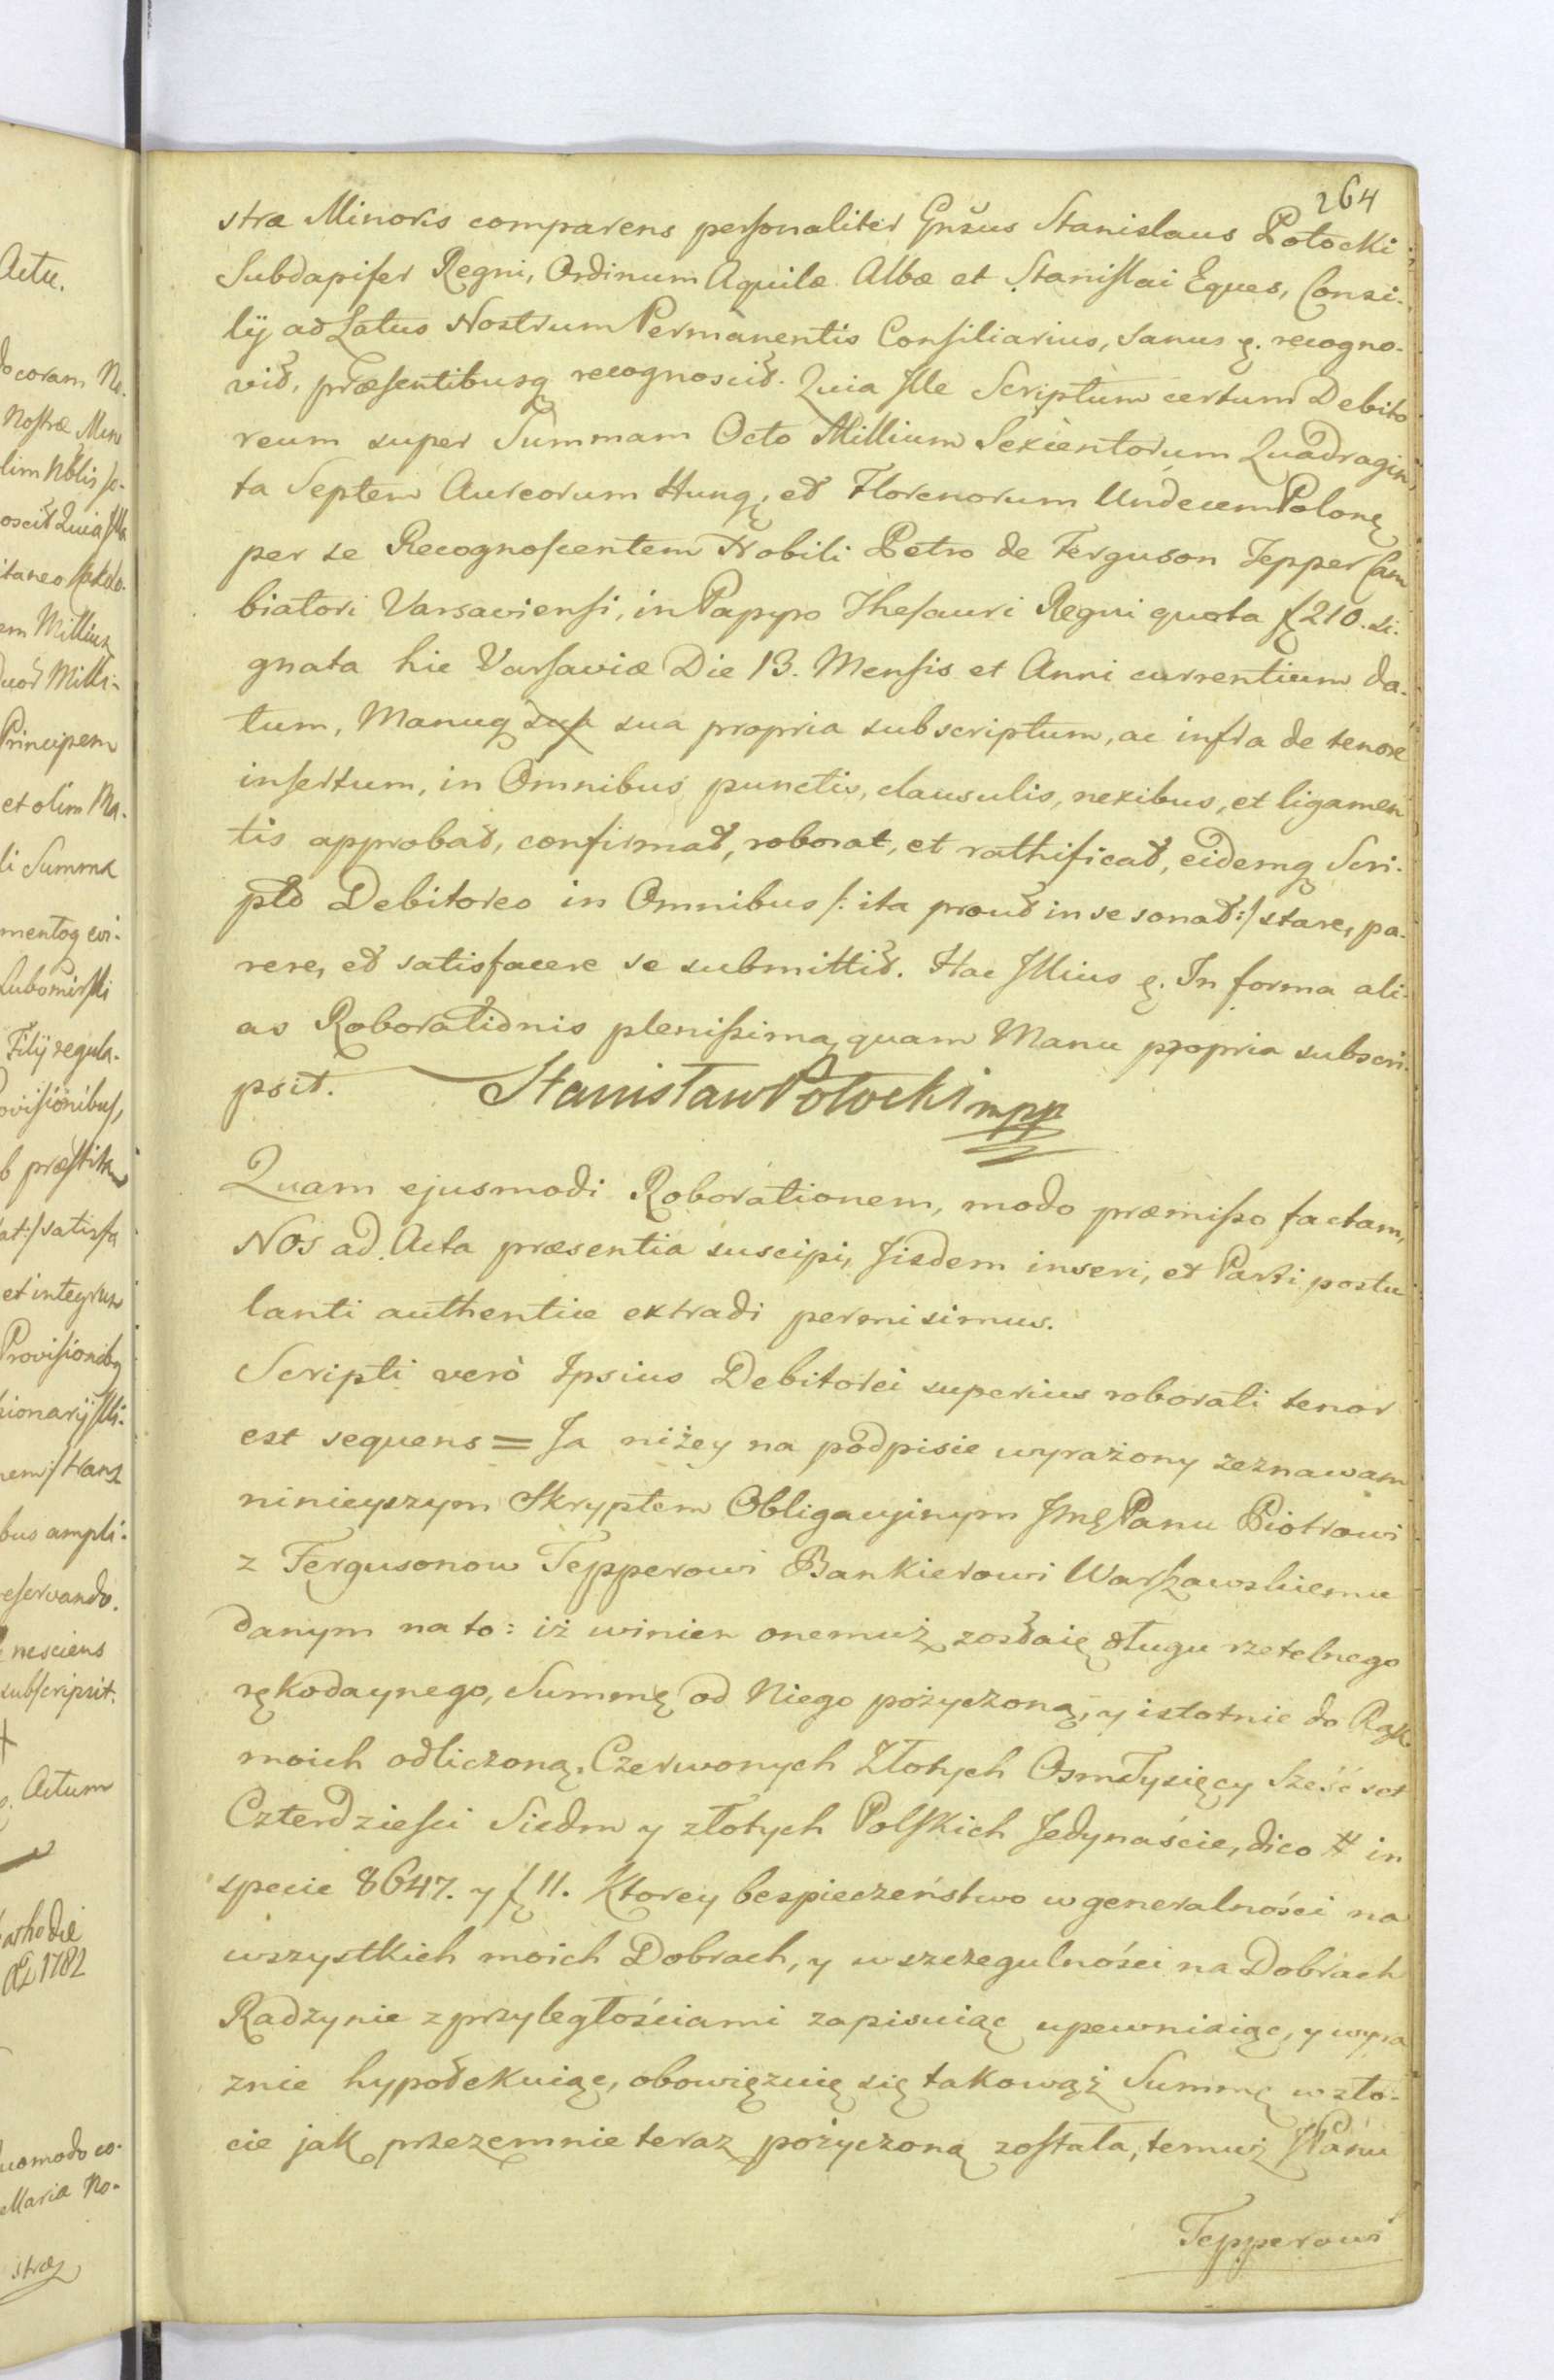 264
stra Minoris comparens personaliter Gnsus Stanislaus Potocki
Subdapifer Regni, Ordinum Aquilæ Albæ et Stanislai Eques, Consi-
lij ad Latus Nostrum Permanentis Consiliarius, sanus ę. recogno-
vit, præsentibusq recognoscit. Quia Ille Scriptum certum Debito
reum super Summam Octo Millium Sexcentorum Quadragin
ta Septem Aureorum Hung, et Florenorum Undecem Polon
per se Recognoscentem Nobili Petro de Ferguson Tepper Cam
biatori Varsaviensi, in Papyro Thesauri Regni quota f 210. si-
gnata hic Varsaviæ Die 13. Mensis et Anni currentium da-
tum, Manuq sua propria subscriptum, ac infra de tenore
insertum, in Omnibus punctis, clausulis, nexibus, et ligamen
tis approbat, confirmat, roborat, et rathificat, eidemq Scri-
pto Debitoreo in Omnibus /: ita prout in se sonat :/ stare, pa-
rere, et satisfacere se submittit. Hac Illius ę. In forma ali-
as Roborationis plenissima, quam Manu propria subscri-
psit. Stanisław Potocki mpp
Quam ejusmodi Roborationem, modo præmisso factam,
Nos ad Acta præsentia suscipi, Iisdem inseri, et Parti postu
lanti authentice extradi permisimus.
Scripti verò Ipsius Debitorei superius roborati tenor
est sequens = Ja niżey na podpisie wyrażony zeznawam
ninieyszym Skryptem Obligacyinym Jmę Panu Piotrowi
z Fergusonow Tepperowi Bankierowi Warszawskiemu
danym na to: iż winien onemuż zostaię długu rzetelnego
rękodaynego, Summę od Niego pożyczoną, y istotnie do Rąk
moich odliczoną, Czerwonych Złotych Osm Tysięcy Sześć set
Czterdzieści Siedm y złotych Polskich Jedynaście, dico # in
specie 8647. y f 11. Ktorey bespieczeństwo w generalności na
wszystkich moich Dobrach, y w szczegulności na Dobrach
Radzynie z przyległościami zapisuiąc upewniaiąc, y wyra
znie hypotekuiąc, obowięzuię się takowąż Summę w zło-
cie jak przezemnie teraz pożyczoną została, temuż JPanu
Tepperowi